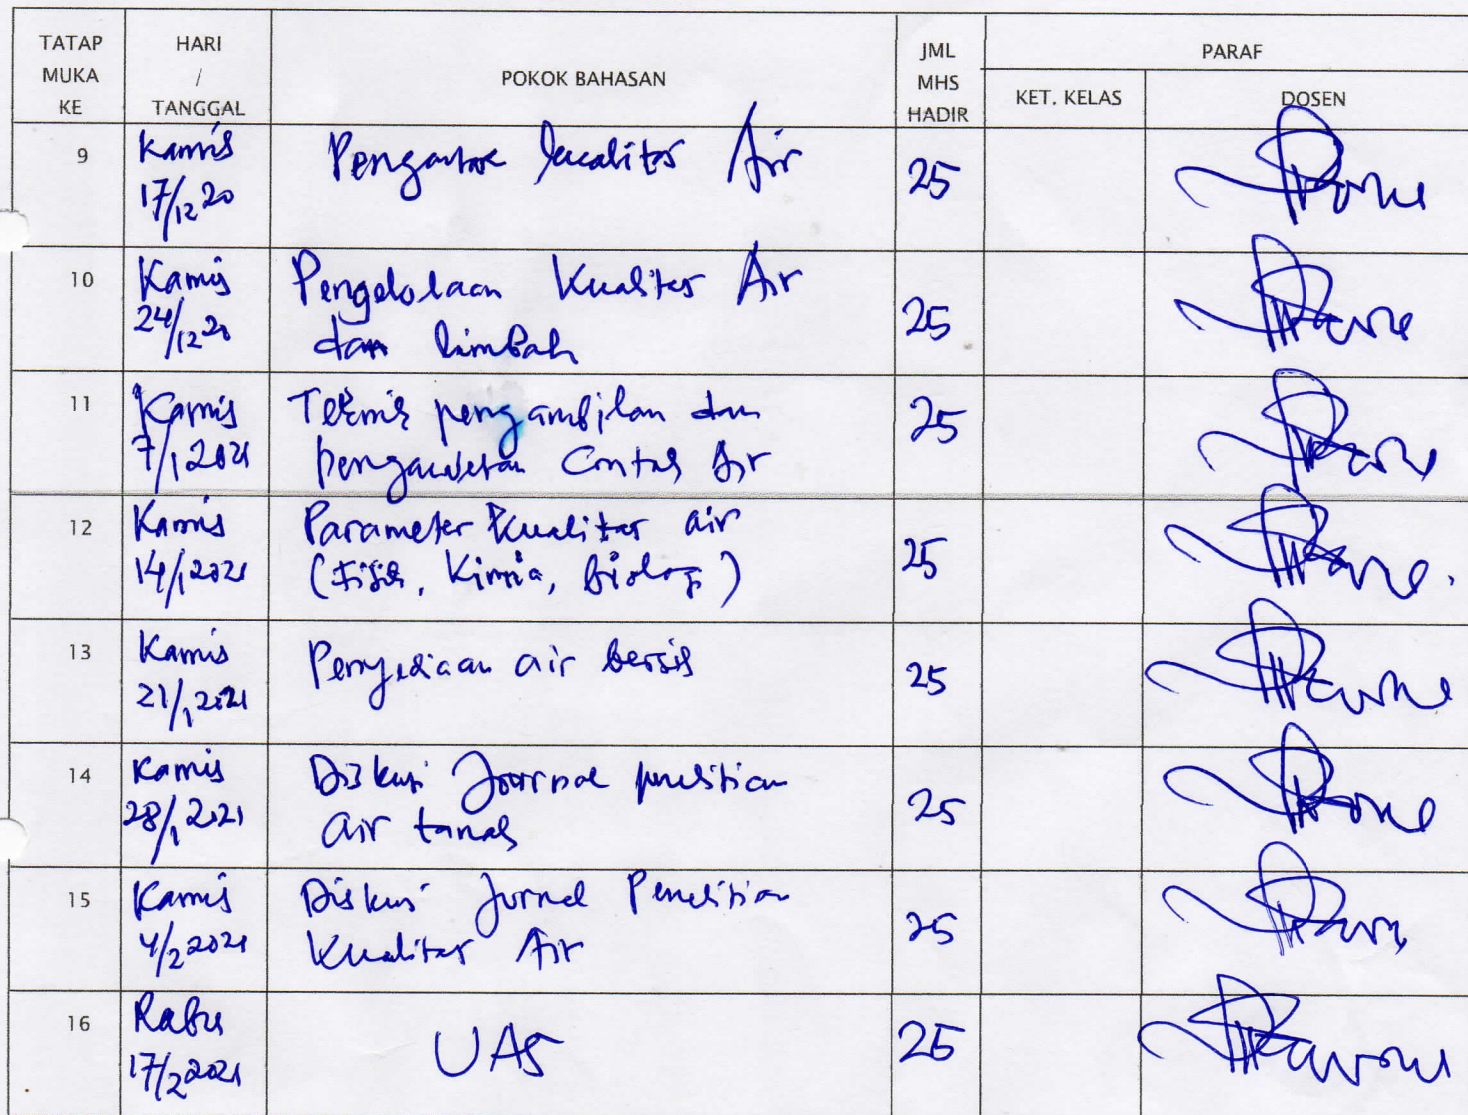 TATAP MUKA KE HARI / TANGGAL POKOK BAHASAN JML MHS HADIR PARAF
KET. KELAS DOSEN
9 Kamis 17/12 20 Pengantar kualitas Air 25
10 Kamis 24/12 20 Pengelolaan Kualitas Air
dan limbah 25
11 Kamis 7/1 2021 Teknis pengambilan dan
pengawetan Contoh Air 25
12 Kamis 14/1 2021 Parameter Kualitas air
(Fisik, Kimia, Biologi) 25
13 Kamis 21/1 2021 Penyediaan air bersih 25
14 Kamis 28/1 2021 Diskusi Journal penelitian
air tanah 25
15 Kamis 4/2 2021 Diskusi Jurnal Penelitian
Kualitas Air 25
16 Rabu 17/2 2021 UAS 25